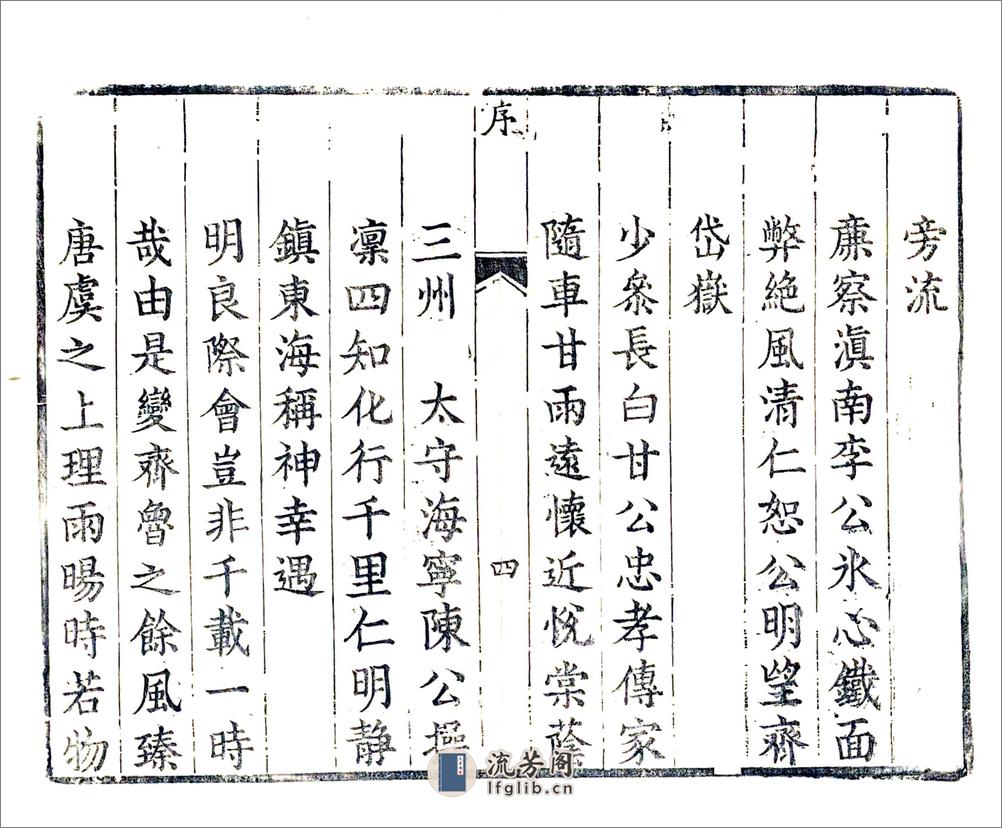 旁流
亷察滇南李公氷心鐵面
弊絶風清仁恕公明望齊
岱嶽
少叅長白甘公忠孝傳家
隨車甘雨遠懷近悅棠蔭
序
四
三州　太守海寧陳公操
凛四知化行千里仁明靜
鎭東海稱神幸遇
明良際會豈非千載一時
哉由是變齊魯之餘風臻
唐虞之上理雨暘時若物
流芳阁
lfglib.cn